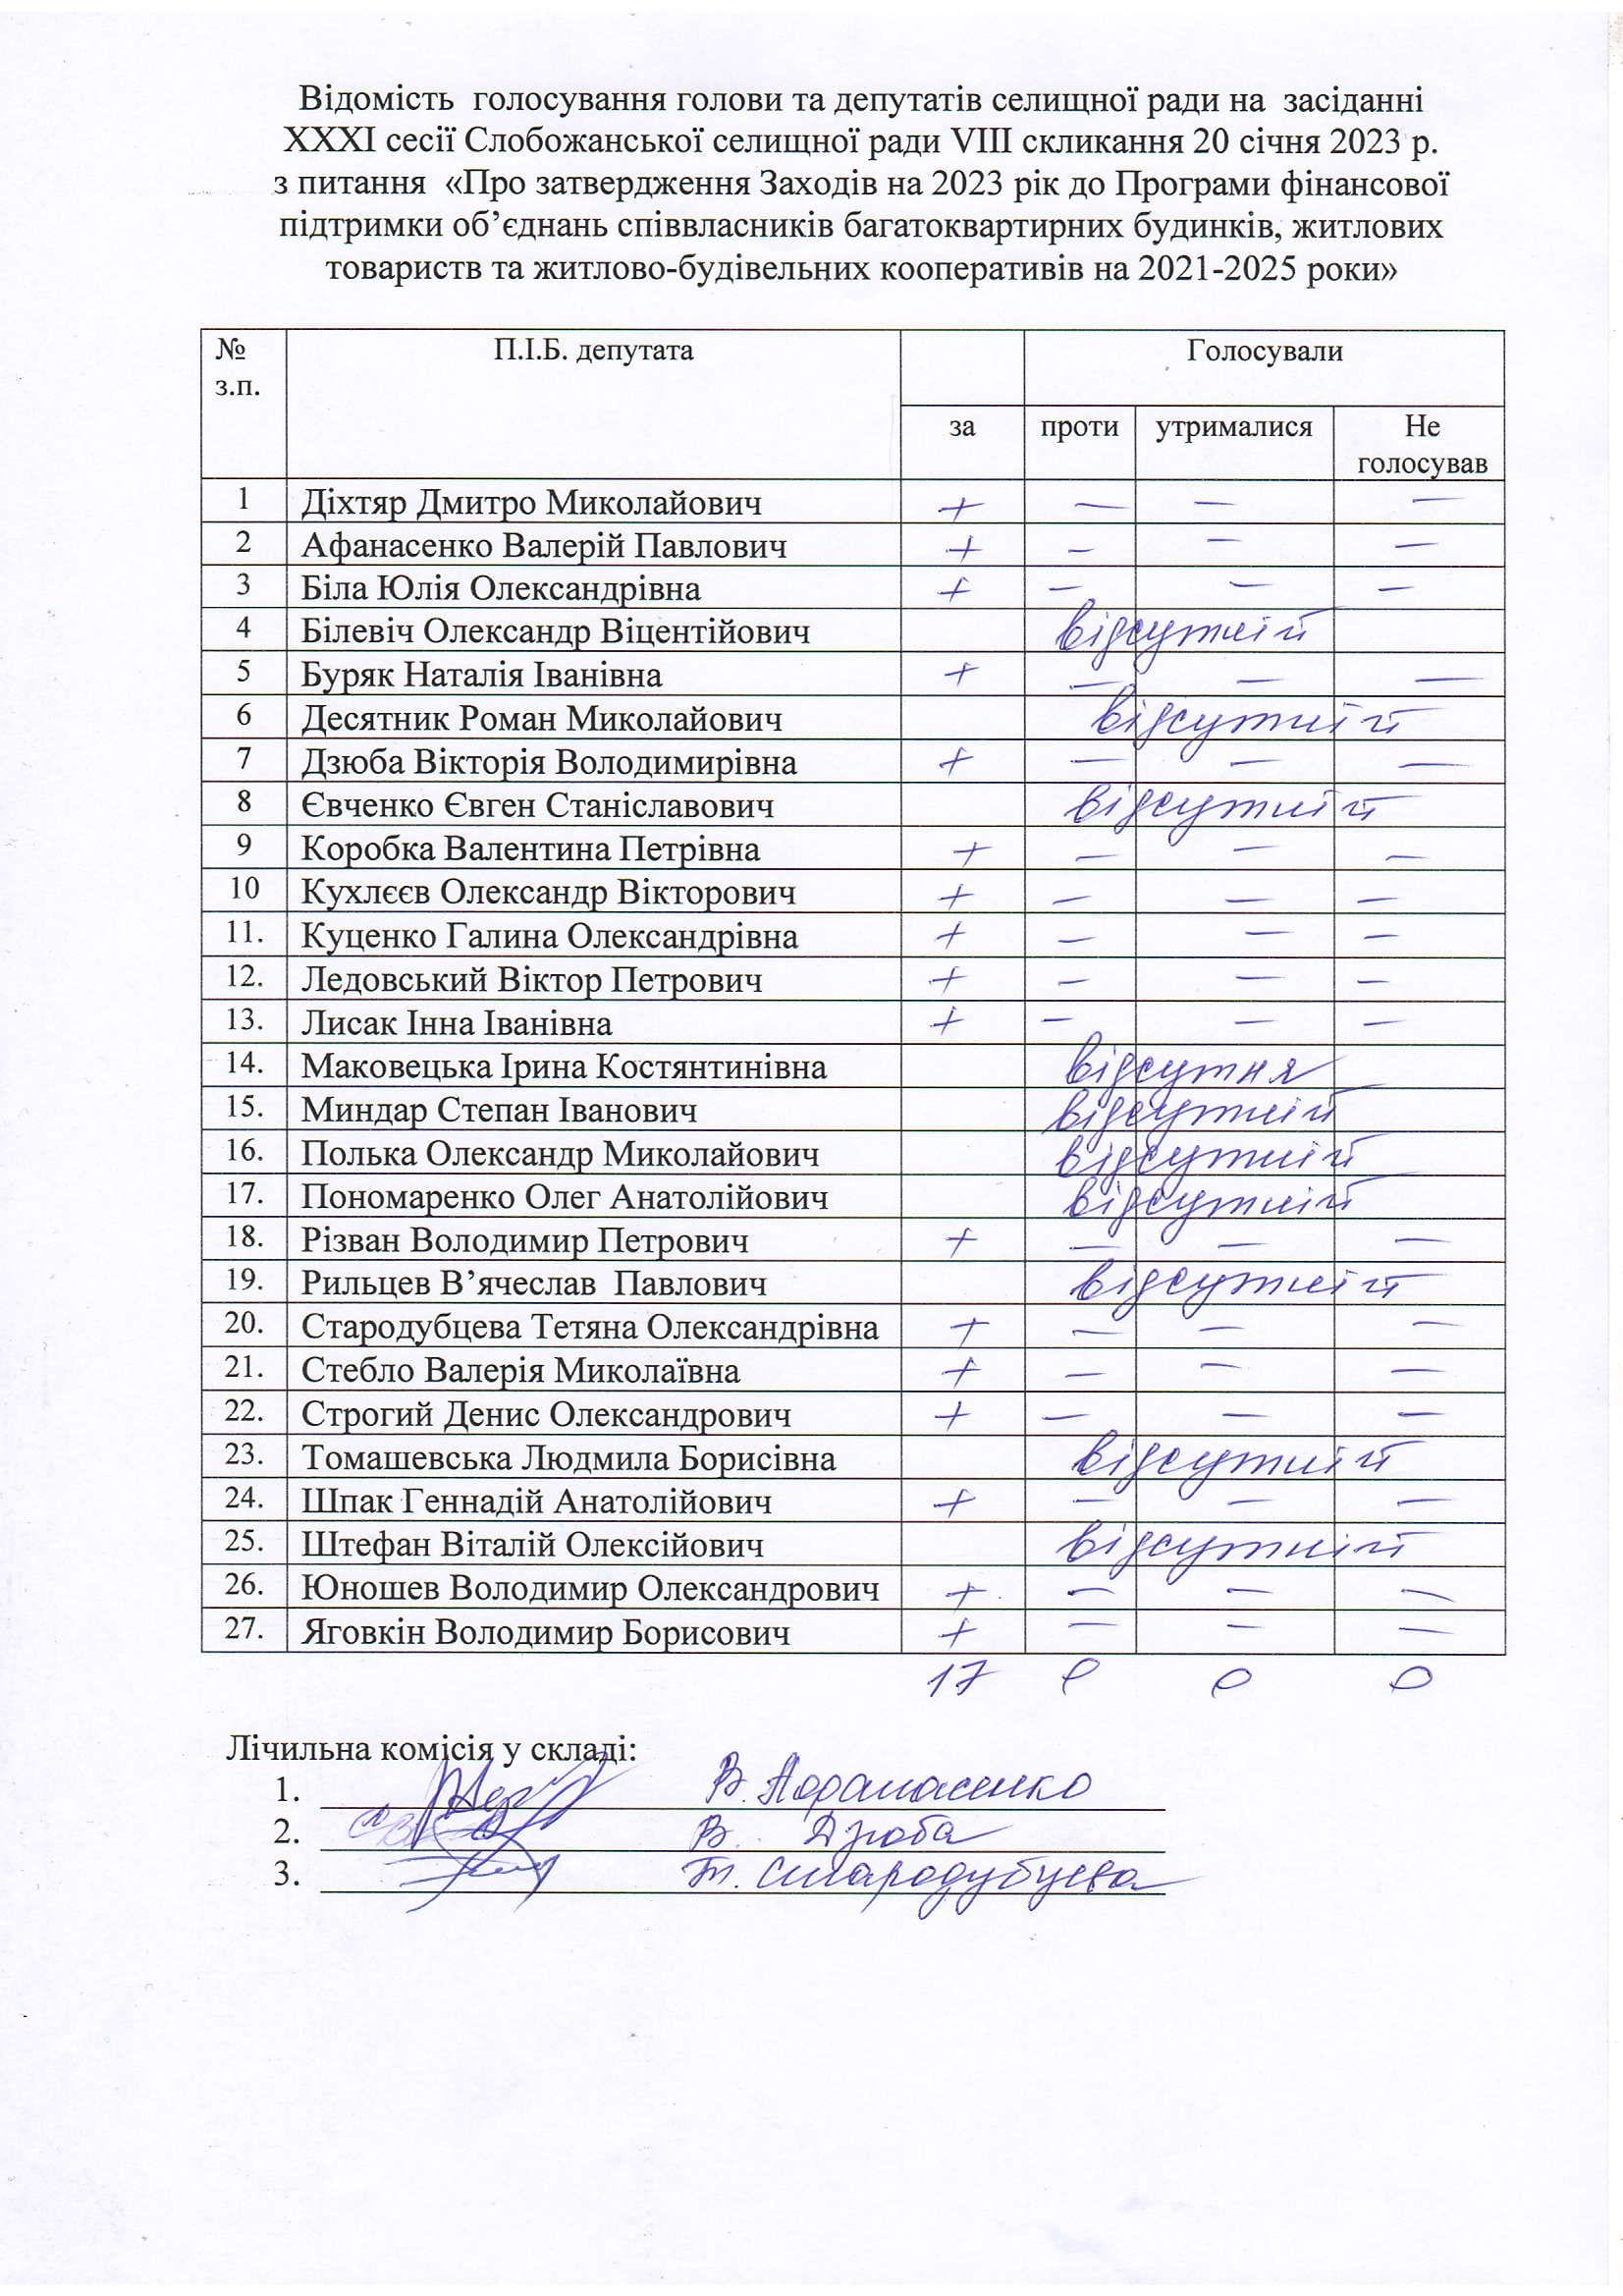 Відомість голосування голови та депутатів селищної ради на засіданні
XXXI сесії Слобожанської селищної ради VIII скликання 20 січня 2023 р.
з питання «Про затвердження Заходів на 2023 рік до Програми фінансової
підтримки об’єднань співвласників багатоквартирних будинків, житлових
товариств та житлово-будівельних кооперативів на 2021-2025 роки»
№ з.п. П.І.Б. депутата Голосували
за проти утрималися Не голосував
1 Діхтяр Дмитро Миколайович + — — —
2 Афанасенко Валерій Павлович + — — —
3 Біла Юлія Олександрівна + — — —
4 Білевіч Олександр Віцентійович відсутній
5 Буряк Наталія Іванівна + — — —
6 Десятник Роман Миколайович відсутній
7 Дзюба Вікторія Володимирівна + — — —
8 Євченко Євген Станіславович відсутній
9 Коробка Валентина Петрівна + — — —
10 Кухлєєв Олександр Вікторович + — — —
11. Куценко Галина Олександрівна + — — —
12. Ледовський Віктор Петрович + — — —
13. Лисак Інна Іванівна + — — —
14. Маковецька Ірина Костянтинівна відсутня
15. Миндар Степан Іванович відсутній
16. Полька Олександр Миколайович відсутній
17. Пономаренко Олег Анатолійович відсутній
18. Різван Володимир Петрович + — — —
19. Рильцев В’ячеслав Павлович відсутній
20. Стародубцева Тетяна Олександрівна + — — —
21. Стебло Валерія Миколаївна + — — —
22. Строгий Денис Олександрович + — — —
23. Томашевська Людмила Борисівна відсутній
24. Шпак Геннадій Анатолійович + — — —
25. Штефан Віталій Олексійович відсутній
26. Юношев Володимир Олександрович + — — —
27. Яговкін Володимир Борисович + — — —
17 0 0 0
Лічильна комісія у складі:
1. В. Афанасенко
2. В. Дзюба
3. Т. Стародубцева